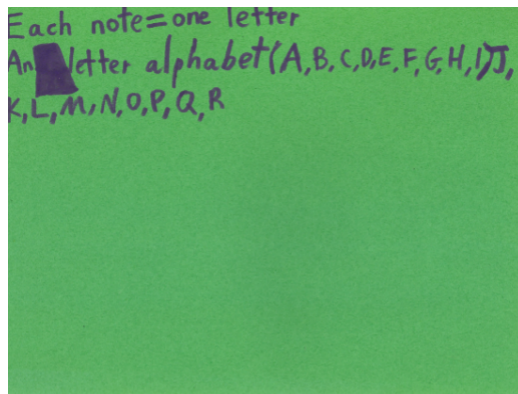 Each note=one letter
An letter alphabet(A,B,C,D,E,F,G,H,I)J,
K,L,M,N,O,P,Q,R